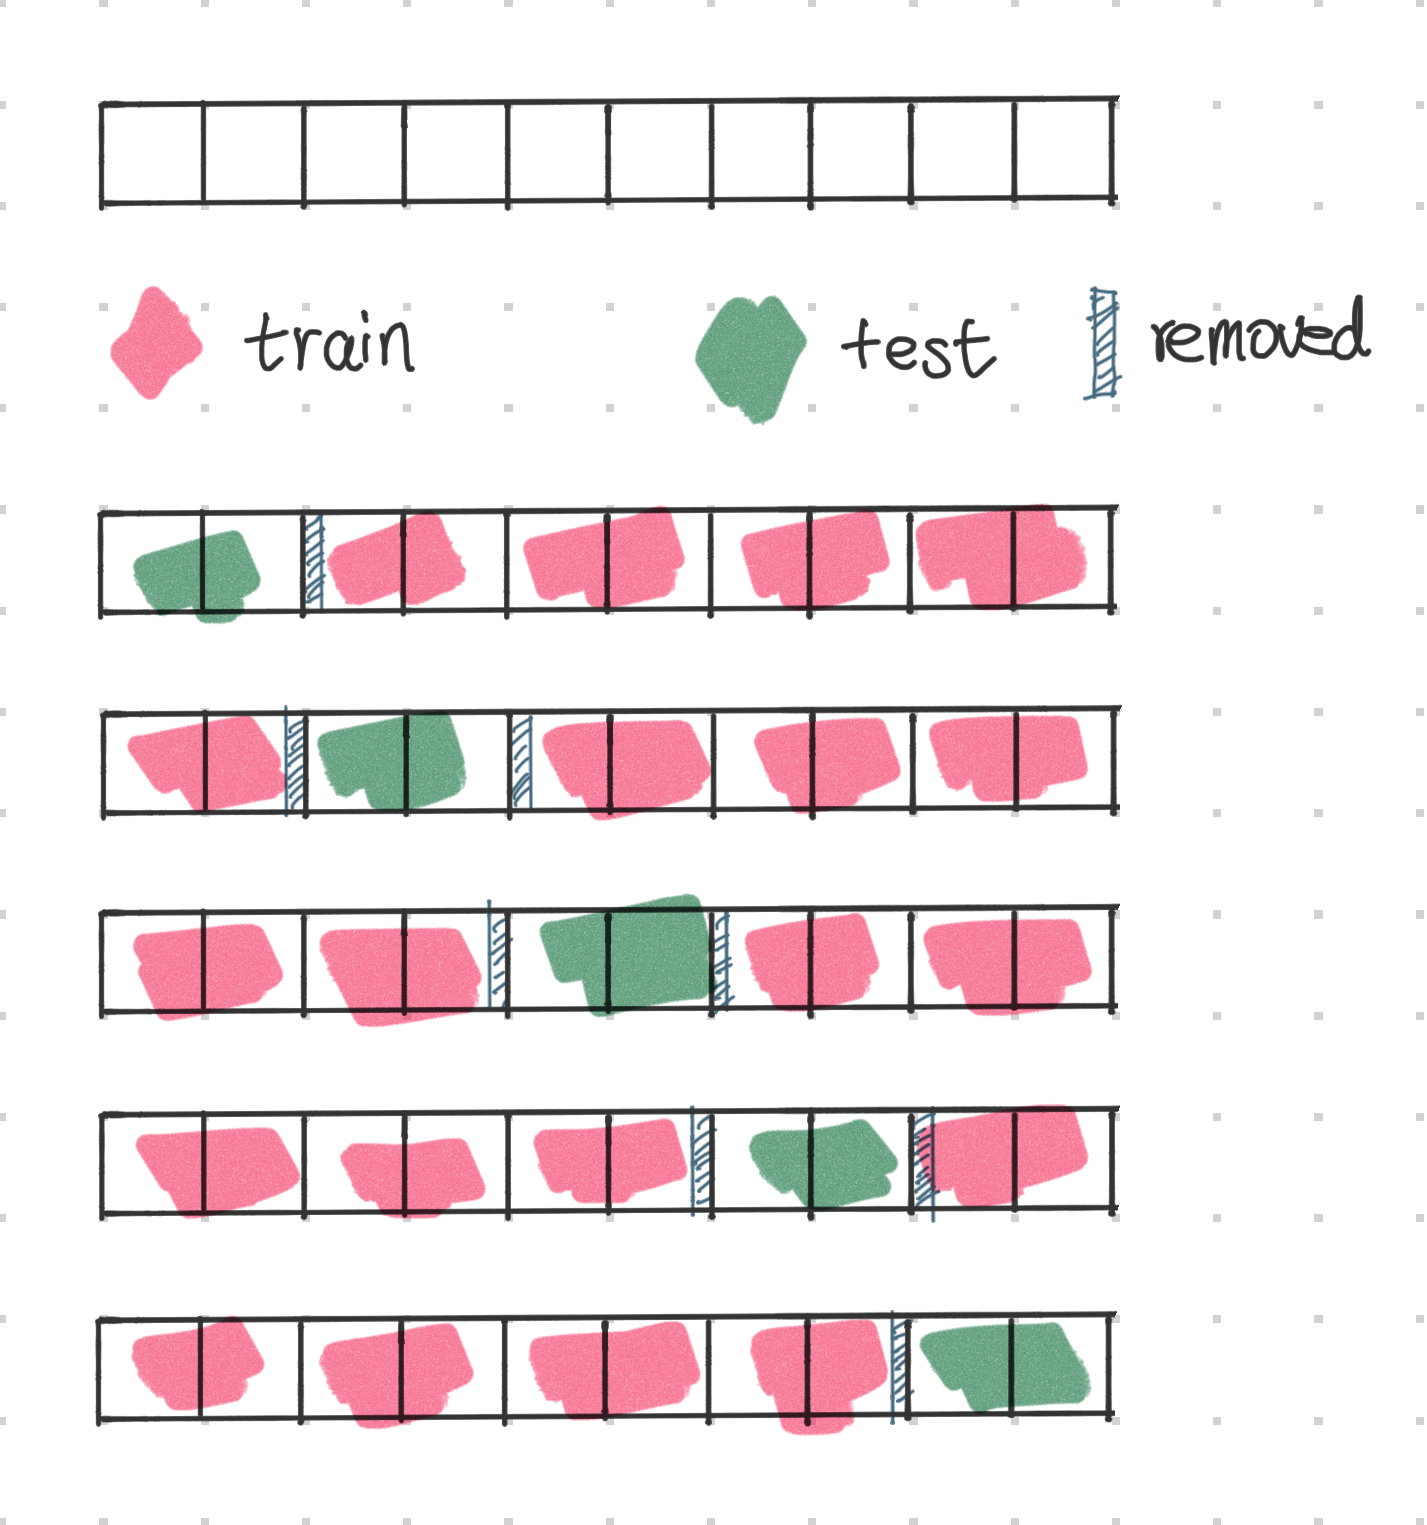 train test removed